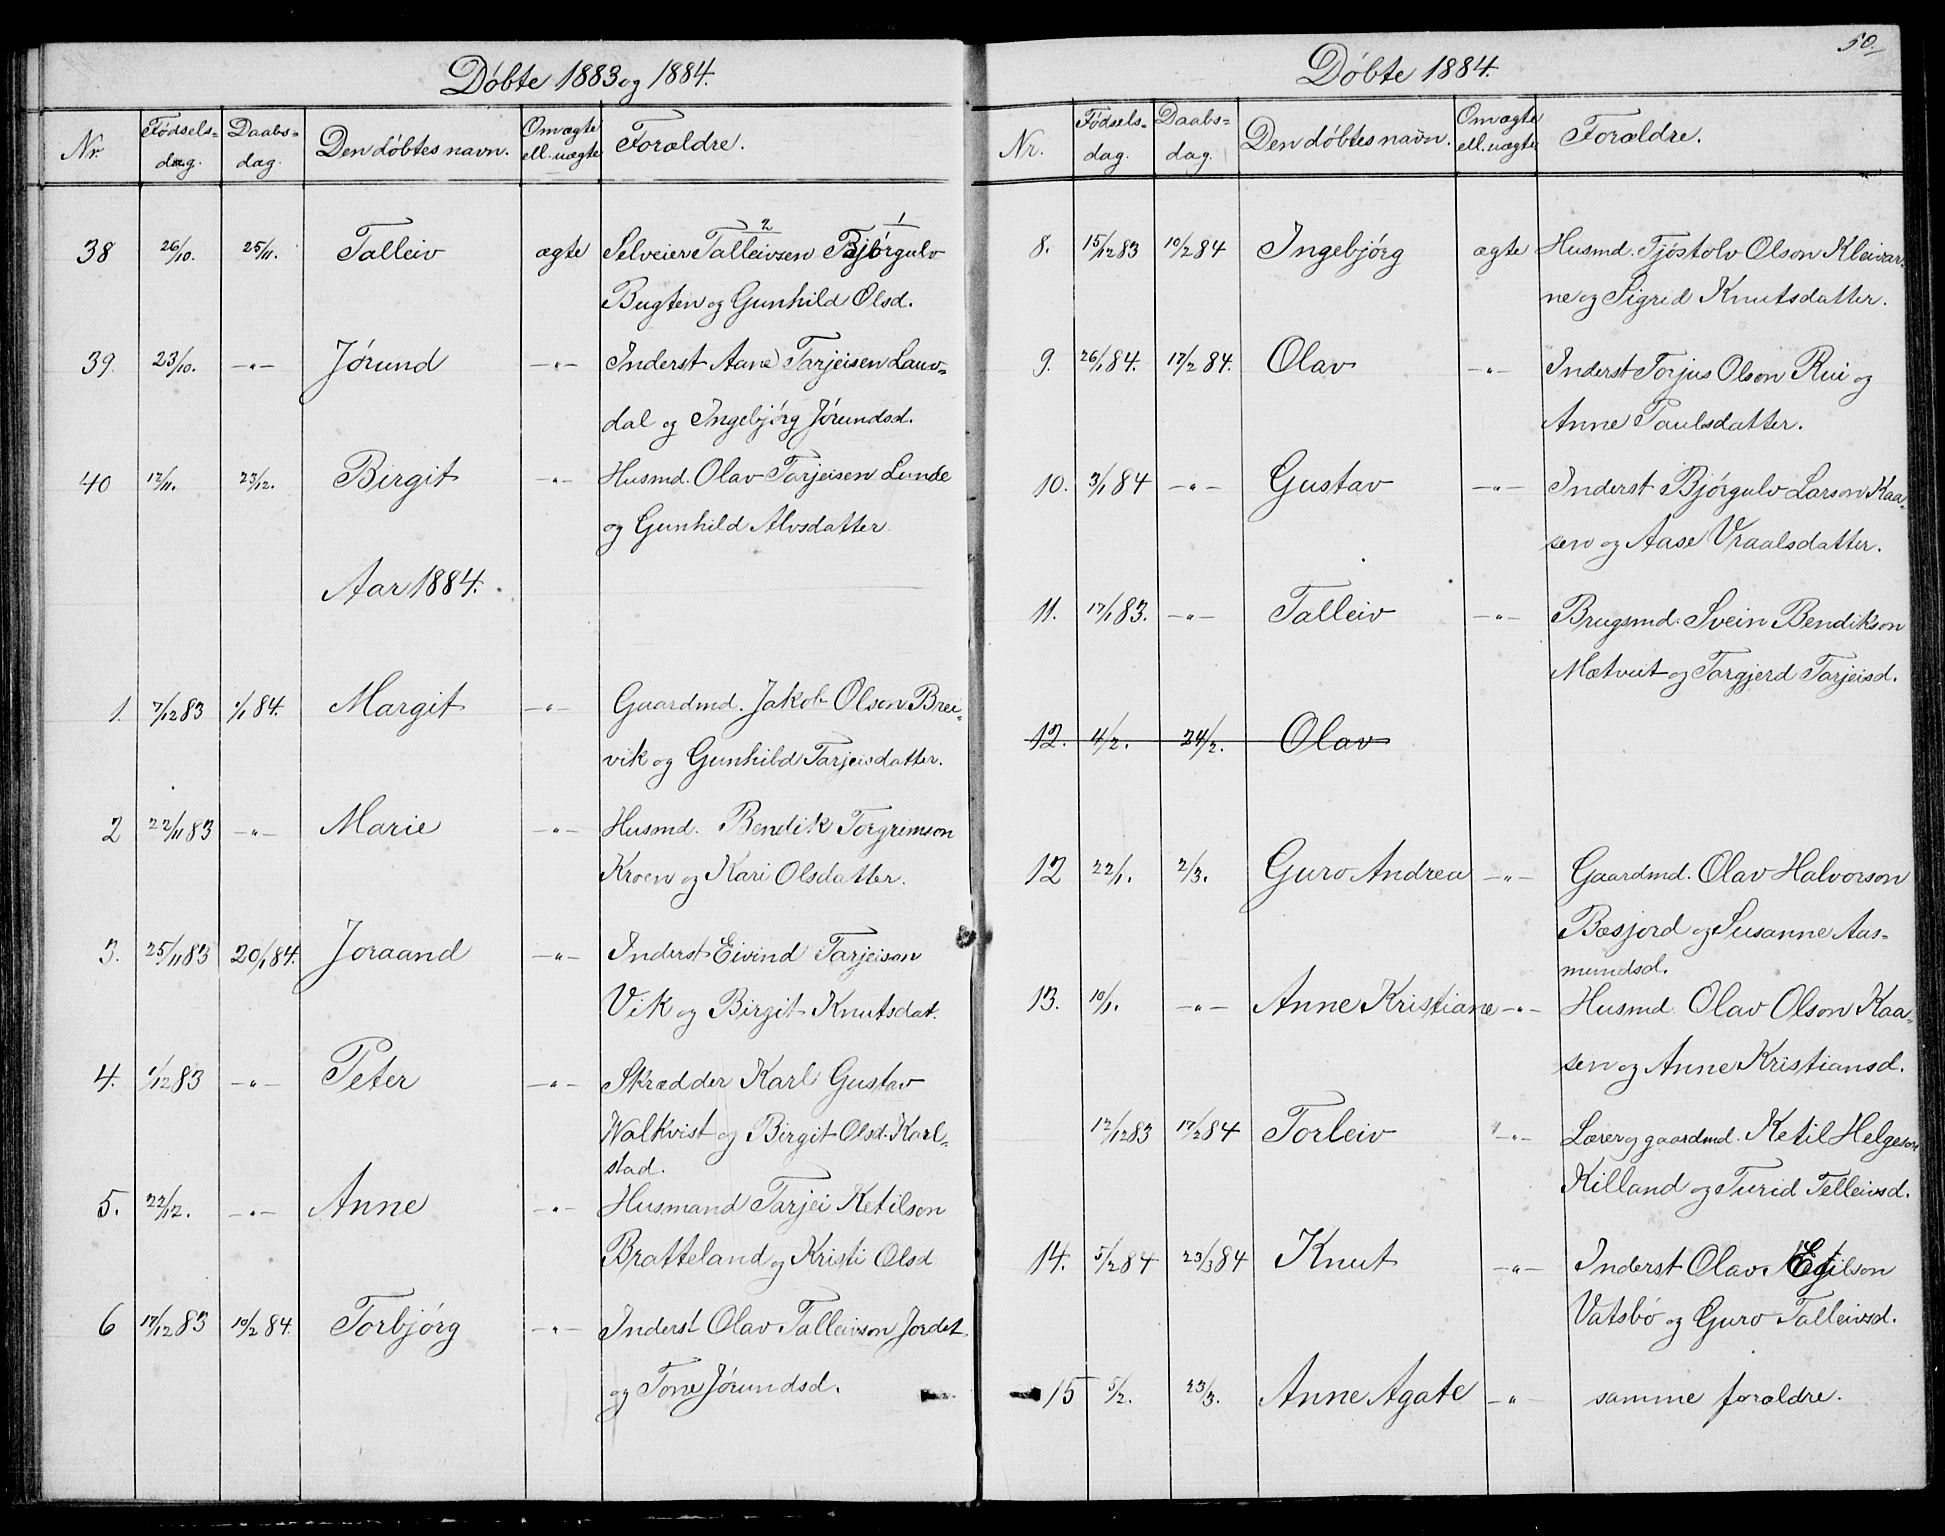 Döbte 1883 og 1884.
Nr. Fødsels= dag. Daabs= dag. Den döbtes navn. Om ægte ell. uægte Forældre.
38 26/10. 25/11. Talleiv ægte Selveier Talleivsen Bjørgulv
2 1
Bugten og Gunhild Olsd.
39. 23/10. -"- Jørund -"- Inderst Aane Tarjeisen Lauv=
dal og Ingebjörg Jörundsd.
40 12/11. 23/12. Birgit -"- Husmd. Olav Tarjeisen Lunde
og Gunhild Alvsdatter
Aar 1884.
1. 7/12 83 1/1 84. Margit -"- Gaardmd. Jakob Olson Brei=
vik og Gunhild Tarjeisdatter.
2 22/11 83 -"- Marie -"- Husmd. Bendik Torgrimson
Kroen og Kari Olsdatter.
3. 25/11 83 20/1 84. Joraand -"- Inderst Eivind Tarjeison
Vik og Birgit Knutsdat.
4. 1/12 83 -"- Peter -"- Skrædder Karl Gustav
Walkvist og Birgit Olsd. Karl=
stad.
5. 22/12. -"- Anne -"- Husmand Tarjei Ketilson
Bratteland og Kristi Olsd
6 17/12 83 10/2 84. Torbjörg -"- Inderst Olav Talleivson Jordet
og Tone Jörundsd.
50.
Döbte 1884.
Nr. Fødsels= dag. Daabs= dag. Den döbtes navn. Om ægte ell. uægte Forældre.
8. 15/12 83 10/2 84 Ingebjörg ægte Husmd. Tjöstolv Olson Kleivar=
ne og Sigrid Knutsdatter.
9. 26/1 84. 17/2 84. Olav -"- Inderst Torjus Olson Rui og
Anne Paulsdatter.
10. 3/1 84 -"- Gustav -"- Inderst Bjørgulv Larson Kaa=
sen og Aase Vraalsdatter.
11. 17/1 83. -"- Talleiv -"- Brugsmd. Svein Bendikson
Mætveit og Torgjerd Tarjeisd.
12. 4/2. 24/2. Olav
12 22/1. 2/3. Guro Andrea -"- Gaardmd. Olav Halvorson
Bøsjord og Susanne Aas=
mundsd.
13. 10/1. -"- Anne Kristiane -"- Husmd. Olav Olson Kaa=
sen og Anne Kristiansd.
12/12 83 17/2 84 Torleiv -"- Lærer og gaardmd. Ketil Helgeson
Killand og Turid Telleivsd.
14. 5/2 84 23/3 84 Knut -"- Inderst Olav Egilson
Vatsbö og Guro Talleivsd.
15 5/2. 23/3. Anne Agate -"- samme forældre.